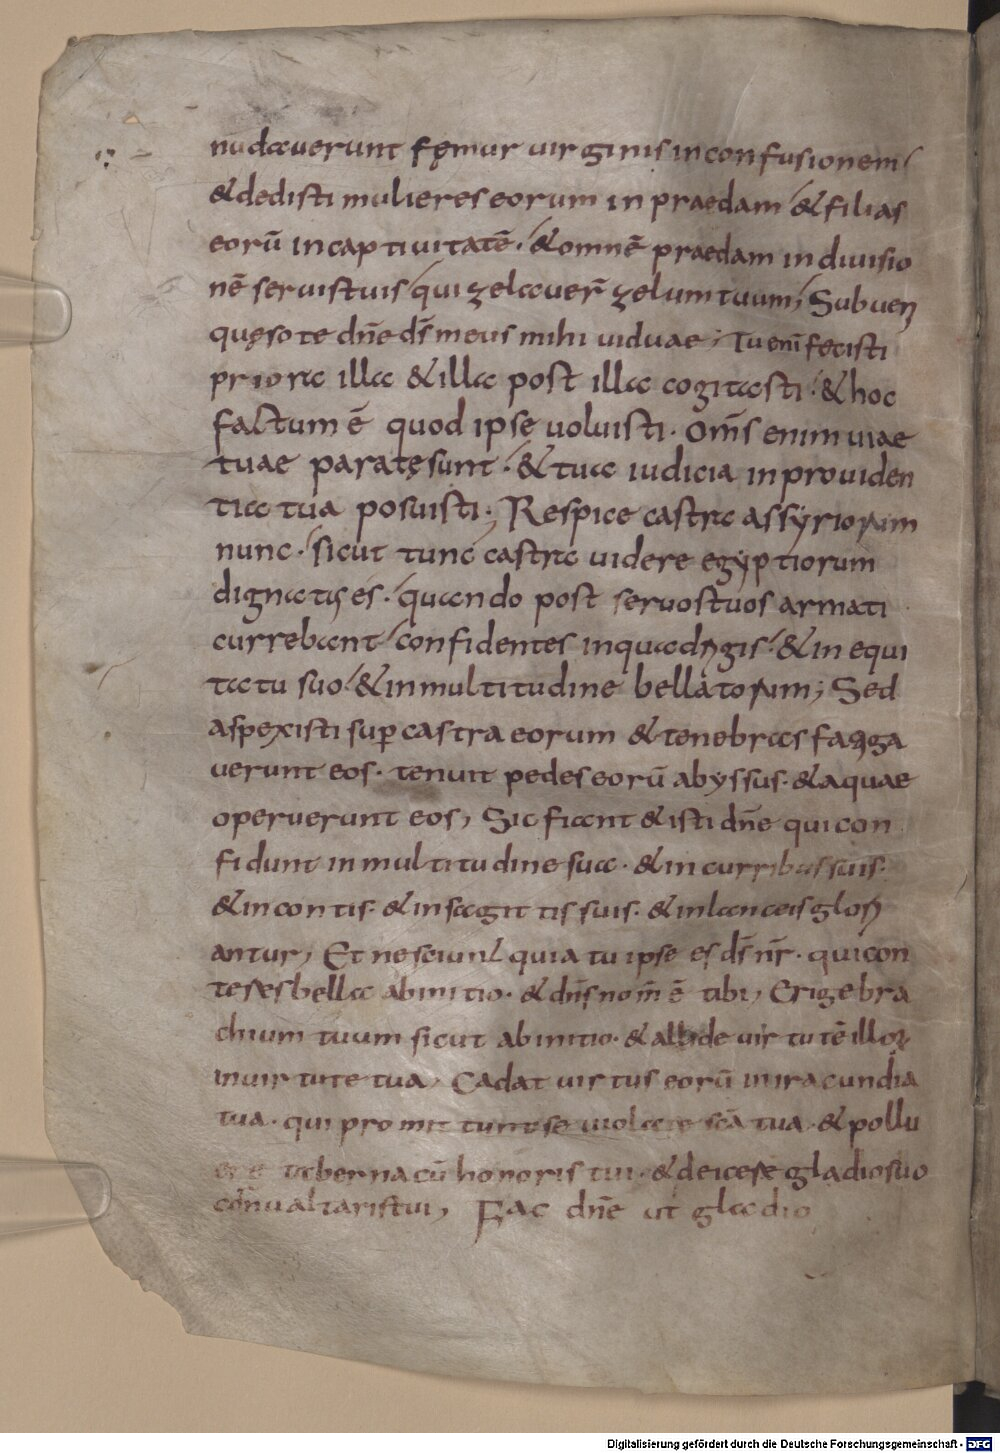 nudauerunt femur uirginis inconfusionem
&dedisti mulieres eorum in praedam &filias
eorū incaptiuitatē · &omnē praedam indiuisio
nē seruistuis qui zelauer̄ zelum tuum; Subuen
quęso te dn̄e ds̄ meus mihi uiduae; Tu enī fecisti
priora illa &illa post illa cogitasti · &hoc
factum ē quod ipse uoluisti · Om̄s enim uiae
tuae paratę sunt · &tua iudicia inprouiden
tia tua posuisti; Respice castra assyriorum
nunc · sicut tunc castra uidere egyptiorum
dignatus es · quando post seruostuos armati
currebant confidentes inquadrigis · &in equi
tatu suo · &inmultitudine bellatorum; Sed
aspexisti sup̄ castra eorum &tenebras fatiga
uerunt eos · tenuit pedes eorū abyssus · &aquae
operuerunt eos; Sic fiant &isti dn̄e qui con
fidunt in multitudine sua · &incurribus suis ·
&incontis · &insagittis suis · &inlanceis glori
antur; Et nesciunt quia tu ipse es ds̄ nr̄ · qui con
teres bella abinitio · &dn̄s nom̄ ē tibi; Erige bra
chium tuum sicut abinitio · &allide uirtutē illorum
inuirtute tua; Cadat uirtus eorū in iracundia
tua · qui promittunt se uiolare sc̄a tua · &pollu
ere tabernacū honoris tui · &deicere gladio suo
cornu altaris tui; Fac dn̄e ut gladio
Digitalisierung gefördert durch die Deutsche Forschungsgemeinschaft - DFG